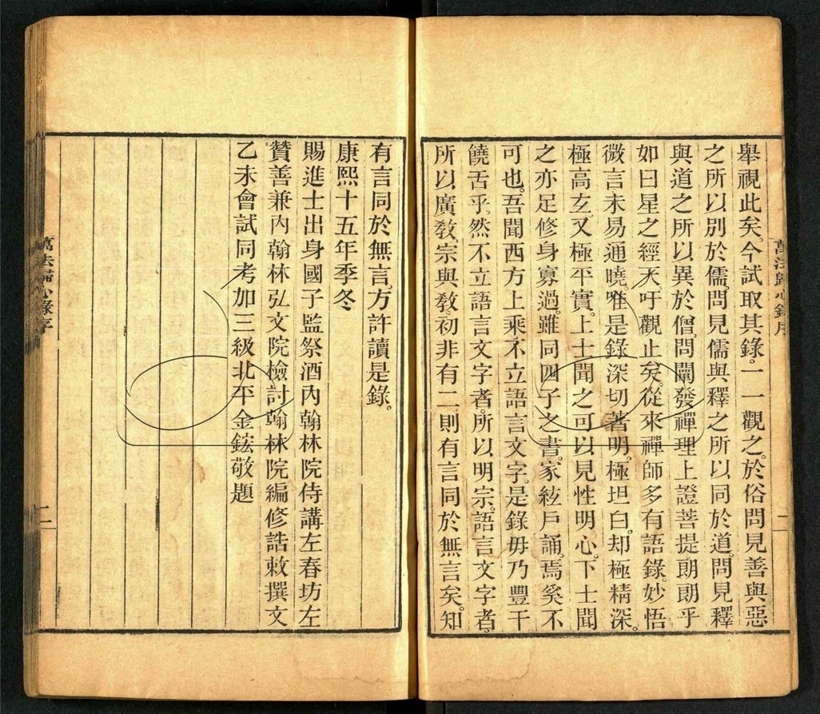 萬法歸心錄序
二
舉視此矣。今試取其錄。一一觀之。於俗問見善與惡
之所以別於儒。問見儒與釋之所以同於道。問見釋
與道之所以異於僧。問闡發禪理上證菩提朗朗乎
如日星之經天。吁觀止矣。從來禪師多有語錄。妙悟
微言未易通曉。唯是錄深切著明。極坦白。却極精深。
極高玄。又極平實。上士聞之可以見性明心。下士聞
之亦足修身寡過。雖同四子之書。家絃戶誦。焉奚不
可也。吾聞西方上乘。不立語言文字。是錄毋乃豐干
饒舌乎。然不立語言文字者。所以明宗。語言文字者。
所以廣敎。宗與敎初非有二。則有言同於無言矣。知
有言同於無言。方許讀是錄。
康熙十五年季冬
賜進士出身國子監祭酒內翰林院侍講左春坊左
贊善兼內翰林弘文院檢討翰林院編修誥敕撰文
乙未會試同考加三級北平金鋐敬題
萬法歸心錄序
二